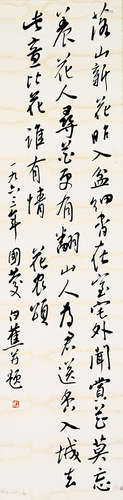 落山新花昨入盆細香在室外聞賞花莫忘
養花人尋花更有翻山人為君送香入城去
此意比花誰有情 花農頌
一九六三年國慶 白蕉並題